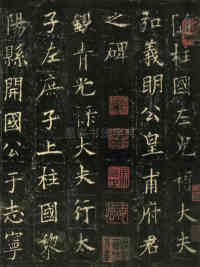 隨柱國左光祿大夫
弘義明公皇甫府君
之碑
銀青光祿大夫行太
子左庶子上柱國黎
陽縣開國公于志寧